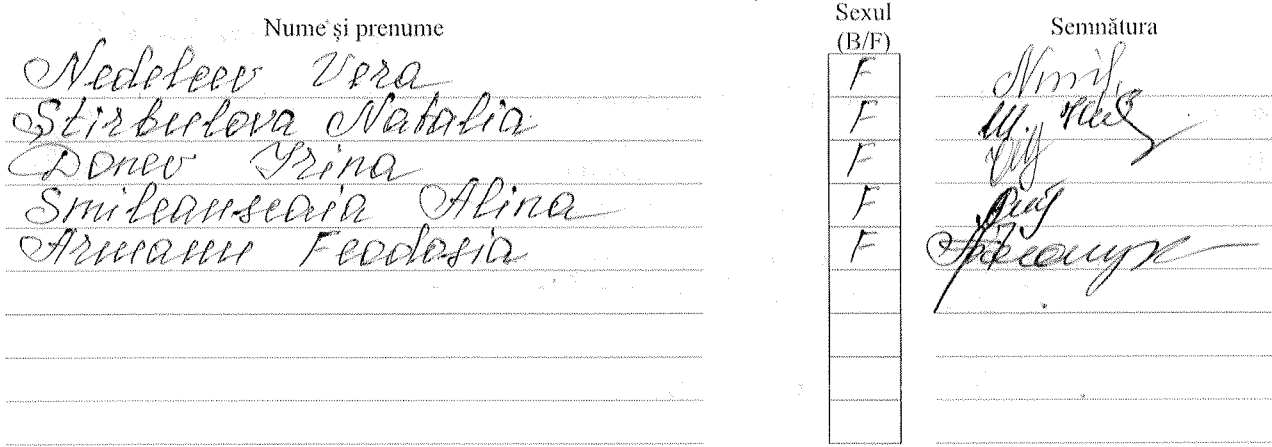 Nume și prenume Sexul (B/F) Semnătura
Nedelcev Vera F
Știrbulova Natalia F
Donev Irina F
Smileanscaia Alina F
Feodosia F